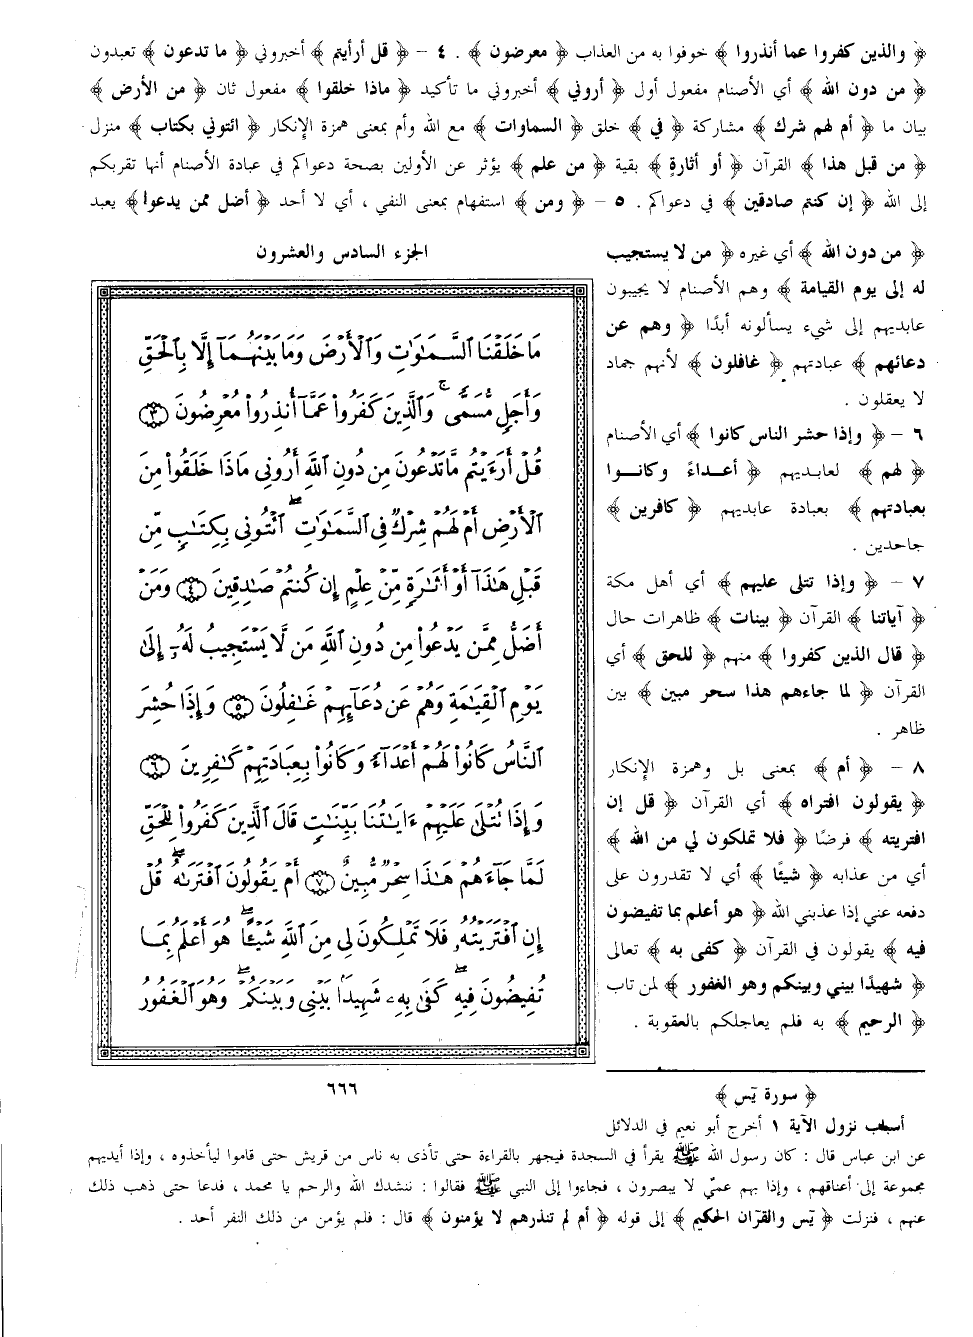 ﴿ والذين كفروا عما أنذروا ﴾ خوفوا به من العذاب ﴿ معرضون ﴾ . ٤ – ﴿ قل أرأيتم ﴾ أخبروني ﴿ ما تدعون ﴾ تعبدون
﴿ من دون الله ﴾ أي الأصنام مفعول أول ﴿ أروني ﴾ أخبروني ما تأكيد ﴿ ماذا خلقوا ﴾ مفعول ثان ﴿ من الأرض ﴾
بيان ما ﴿ أم لهم شرك ﴾ مشاركة ﴿ في ﴾ خلق ﴿ السماوات ﴾ مع الله وأم بمعنى همزة الإنكار ﴿ ائتوني بكتاب ﴾ منزل
﴿ من قبل هذا ﴾ القرآن ﴿ أو أثارةٍ ﴾ بقية ﴿ من علم ﴾ يؤثر عن الأولين بصحة دعواكم في عبادة الأصنام أنها تقربكم
إلى الله ﴿ إن كنتم صادقين ﴾ في دعواكم . ٥ – ﴿ ومن ﴾ استفهام بمعنى النفي ، أي لا أحد ﴿ أضل ممن يدعوا ﴾ يعبد
﴿ من دون الله ﴾ أي غيره ﴿ من لا يستجيب
له إلى يوم القيامة ﴾ وهم الأصنام لا يجيبون
عابديهم إلى شيء يسألونه أبدًا ﴿ وهم عن
دعائهم ﴾ عبادتهم ﴿ غافلون ﴾ لأنهم جماد
لا يعقلون .
٦ – ﴿ وإذا حشر الناس كانوا ﴾ أي الأصنام
﴿ لهم ﴾ لعابديهم ﴿ أعداءً وكانوا
بعبادتهم ﴾ بعبادة عابديهم ﴿ كافرين ﴾
جاحدين .
٧ – ﴿ وإذا تتلى عليهم ﴾ أي أهل مكة
﴿ آياتنا ﴾ القرآن ﴿ بينات ﴾ ظاهرات حال
﴿ قال الذين كفروا ﴾ منهم ﴿ للحق ﴾ أي
القرآن ﴿ لما جاءهم هذا سحر مبين ﴾ بين
ظاهر .
٨ – ﴿ أم ﴾ بمعنى بل وهمزة الإنكار
﴿ يقولون افتراه ﴾ أي القرآن ﴿ قل إن
افتريته ﴾ فرضًا ﴿ فلا تملكون لي من الله ﴾
أي من عذابه ﴿ شيئًا ﴾ أي لا تقدرون على
دفعه عني إذا عذبني الله ﴿ هو أعلم بما تفيضون
فيه ﴾ يقولون في القرآن ﴿ كفى به ﴾ تعالى
﴿ شهيدًا بيني وبينكم وهو الغفور ﴾ لمن تاب
﴿ الرحيم ﴾ به فلم يعاجلكم بالعقوبة .
الجزء السادس والعشرون
مَا خَلَقْنَا ٱلسَّمَٰوَٰتِ وَٱلْأَرْضَ وَمَا بَيْنَهُمَآ إِلَّا بِٱلْحَقِّ
وَأَجَلٍ مُّسَمًّى ۚ وَٱلَّذِينَ كَفَرُوا۟ عَمَّآ أُنذِرُوا۟ مُعْرِضُونَ ﴿٣﴾
قُلْ أَرَءَيْتُم مَّا تَدْعُونَ مِن دُونِ ٱللَّهِ أَرُونِى مَاذَا خَلَقُوا۟ مِنَ
ٱلْأَرْضِ أَمْ لَهُمْ شِرْكٌ فِى ٱلسَّمَٰوَٰتِ ۖ ٱئْتُونِى بِكِتَٰبٍ مِّن
قَبْلِ هَٰذَآ أَوْ أَثَٰرَةٍ مِّنْ عِلْمٍ إِن كُنتُمْ صَٰدِقِينَ ﴿٤﴾ وَمَنْ
أَضَلُّ مِمَّن يَدْعُوا۟ مِن دُونِ ٱللَّهِ مَن لَّا يَسْتَجِيبُ لَهُۥٓ إِلَىٰ
يَوْمِ ٱلْقِيَٰمَةِ وَهُمْ عَن دُعَآئِهِمْ غَٰفِلُونَ ﴿٥﴾ وَإِذَا حُشِرَ
ٱلنَّاسُ كَانُوا۟ لَهُمْ أَعْدَآءً وَكَانُوا۟ بِعِبَادَتِهِمْ كَٰفِرِينَ ﴿٦﴾
وَإِذَا تُتْلَىٰ عَلَيْهِمْ ءَايَٰتُنَا بَيِّنَٰتٍ قَالَ ٱلَّذِينَ كَفَرُوا۟ لِلْحَقِّ
لَمَّا جَآءَهُمْ هَٰذَا سِحْرٌ مُّبِينٌ ﴿٧﴾ أَمْ يَقُولُونَ ٱفْتَرَىٰهُ ۖ قُلْ
إِنِ ٱفْتَرَيْتُهُۥ فَلَا تَمْلِكُونَ لِى مِنَ ٱللَّهِ شَيْـًٔا ۖ هُوَ أَعْلَمُ بِمَا
تُفِيضُونَ فِيهِ ۖ كَفَىٰ بِهِۦ شَهِيدًۢا بَيْنِى وَبَيْنَكُمْ ۖ وَهُوَ ٱلْغَفُورُ
٦٦٦
﴿ سورة يٓس ﴾
أسباب نزول الآية ١ أخرج أبو نعيم في الدلائل
عن ابن عباس قال : كان رسول الله ﷺ يقرأ في السجدة فيجهر بالقراءة حتى تأذى به ناس من قريش حتى قاموا ليأخذوه ، وإذا أيديهم
مجموعة إلى أعناقهم ، وإذا بهم عميٌ لا يبصرون ، فجاءوا إلى النبي ﷺ فقالوا : ننشدك الله والرحم يا محمد ، فدعا حتى ذهب ذلك
عنهم ، فنزلت ﴿ يٓس والقرآن الحكيم ﴾ إلى قوله ﴿ أم لم تنذرهم لا يؤمنون ﴾ قال : فلم يؤمن من ذلك النفر أحد .